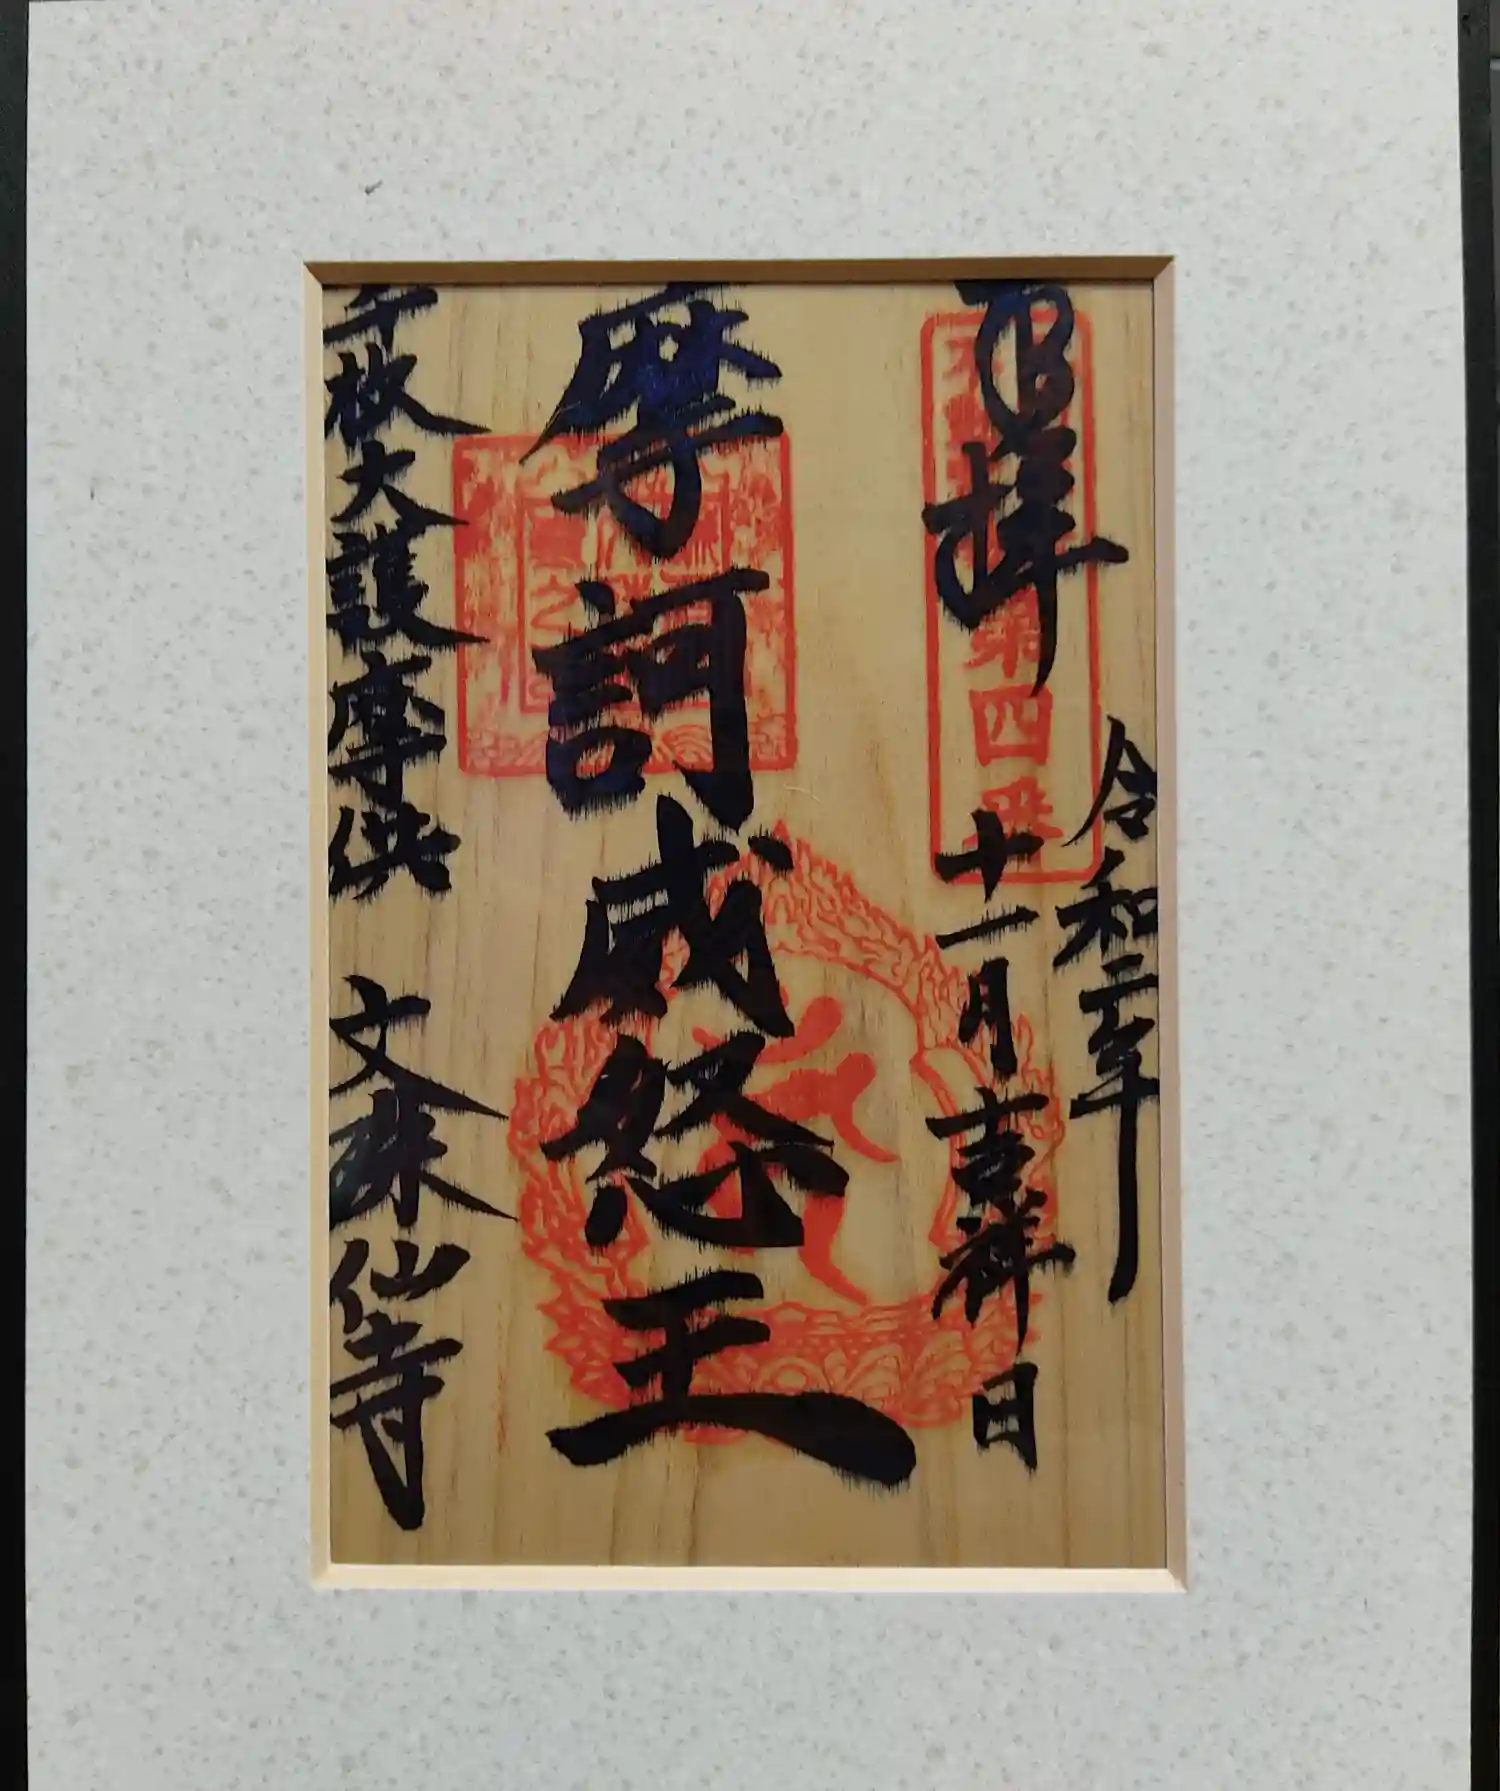 奉拝
第四番
令和二年
十一月吉祥日
摩訶威怒王
千枚大護摩供 文殊仙寺